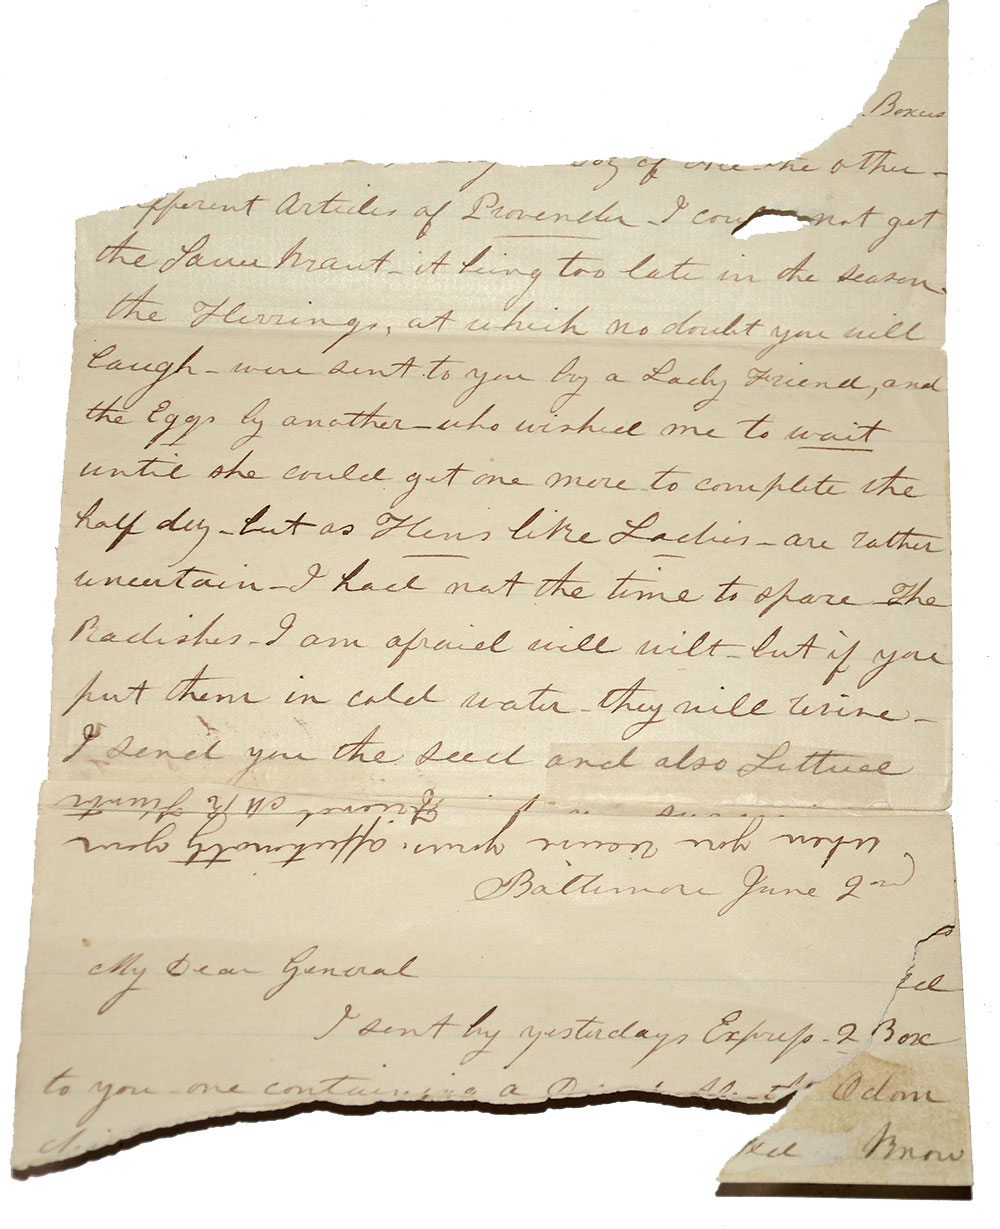 Boxes
of one the other -
Articles of Provender - I could not get
the Sauer Kraut - it being too late in the season -
the Herrings, at which no doubt you will
laugh - were sent to you by a Lady Friend, and
the Eggs by another - who wished me to wait
until she could get one more to complete the
half doz - but as Hens like Ladies - are rather
uncertain - I had not the time to spare - The
Radishes - I am afraid will wilt - but if you
put them in cold water - they will revive -
I send you the seed and also Lettuce
when you receive yours. affectionately your
Baltimore June 2nd
My Dear General
I sent by yesterdays Express - 2 Box
to you - one containing a Odom
Know